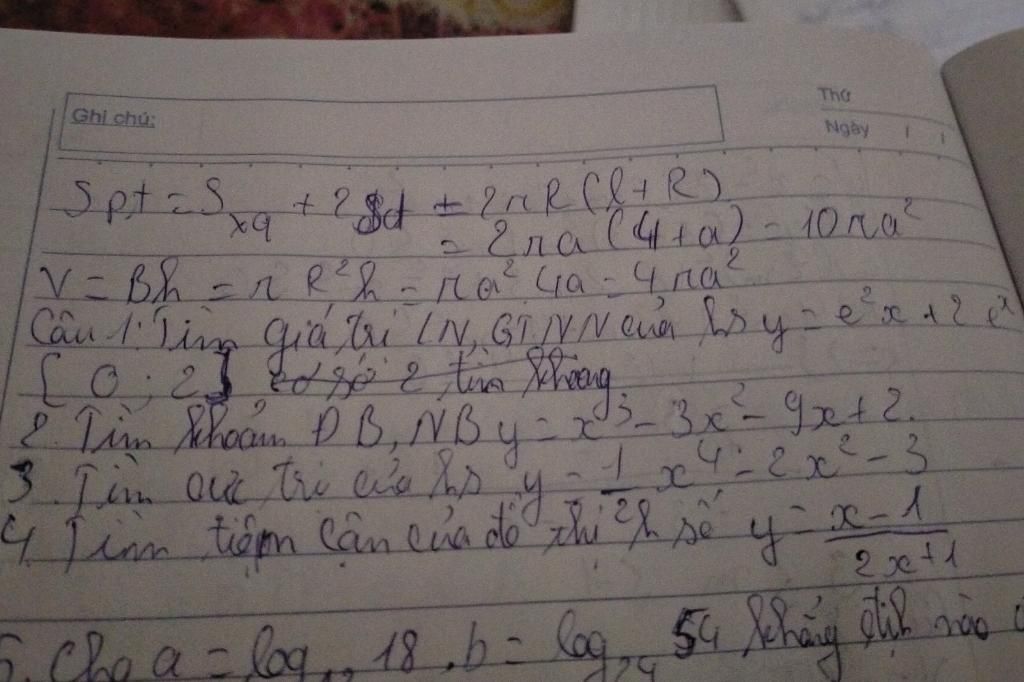 Ghi chú:
Thứ
Ngày / /
Spt = Sxq + 2Sđ = 2πR(l+R)
= 2πa(4+a) = 10πa²
V = Bh = πR²h = πa² 4a = 4πa²
Câu 1: Tìm giá trị LN, GTNN của hs y = e²x + 2e^x
[0; 2]
2. Tìm khoản ĐB, NB y = x³ - 3x² - 9x + 2.
3. Tìm cực trị của hs y = 1/2 x⁴ - 2x² - 3
4. Tìm tiệm cận của đồ thị h số y = (x - 1)/(2x + 1)
Cho a = log 18, b = log 54 khẳng định nào